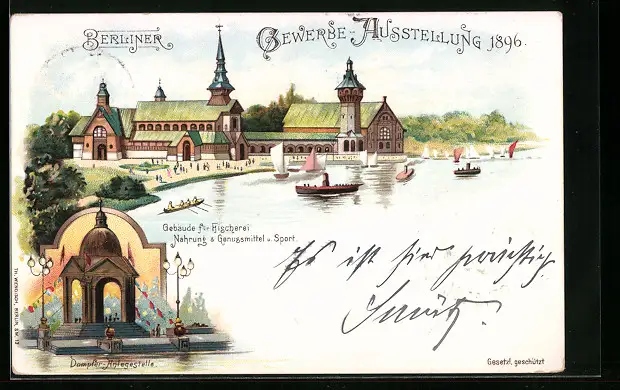 BERLINER GEWERBE-AUSSTELLUNG 1896.
Gebäude für Fischerei
Nahrung & Genussmittel u. Sport.
Es ist hier prächtig
Dampfer-Anlegestelle.
Gesetzl. geschützt